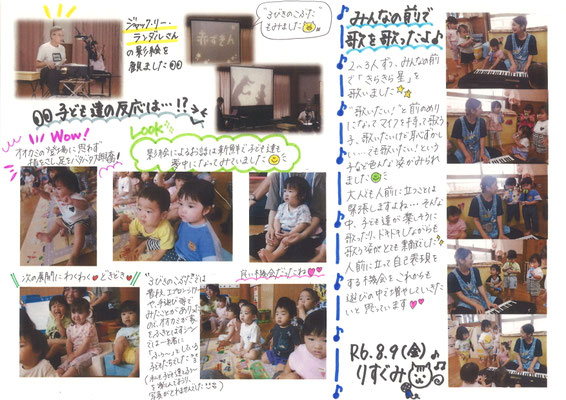 ジャック・リー・
ランダルさん
の影絵を
観ました
赤ずきん
"3びきのこぶた"
もみました
子ども達の反応は…!?
Wow!
オオカミの登場に思わず
指をさし足をバタバタ
Look
影絵によるお話は新鮮で子ども達も
夢中になってみていました
次の展開にわくわく♥どきどき♥
良い機会だったね♥♥
"3びきのこぶた"は
みたことがあり
オオカミが
一緒に
"ふぅーっ"としている
子どもたちでした
みんなの前で
歌を歌ったよ♪
2〜3人ずつ、みんなの前
で「きらきら星」を
歌いました
"歌いたい!"と前のめり
になってマイクを持って歌う
子、歌いたいけど恥ずかし
い…でも歌いたい!という
子など色んな姿がみられ
ました
大人でも人前に立つことは
緊張しますよね…そんな
中、子ども達が楽しそうに
歌ったり、ドキドキしながらも
歌う姿がとても素敵でした
人前に立って自己表現を
する機会をこれからも
遊びの中で増やしていきた
いと思っています♥♥
R6.8.9(金)
りすぐみ